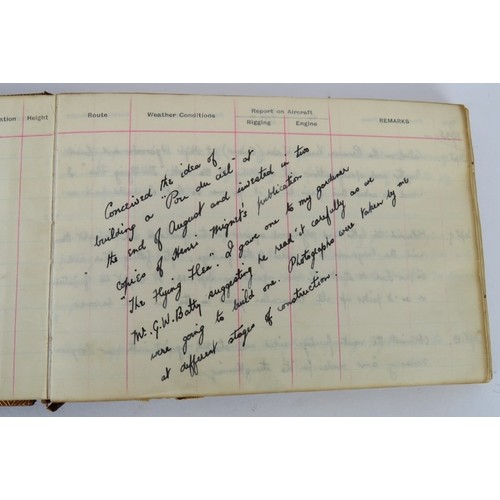 Report on Aircraft
ation Height Route Weather Conditions Rigging Engine REMARKS
Conceived the idea of
building a "Pou du ciel" at
the end of August and invested in two
copies of Henri Mignet's publication
"The Flying Flea". I gave one to my gardener
Mr. G.W. Batty suggesting he read it carefully as we
were going to build one. Photographs were taken by me
at different stages of construction.